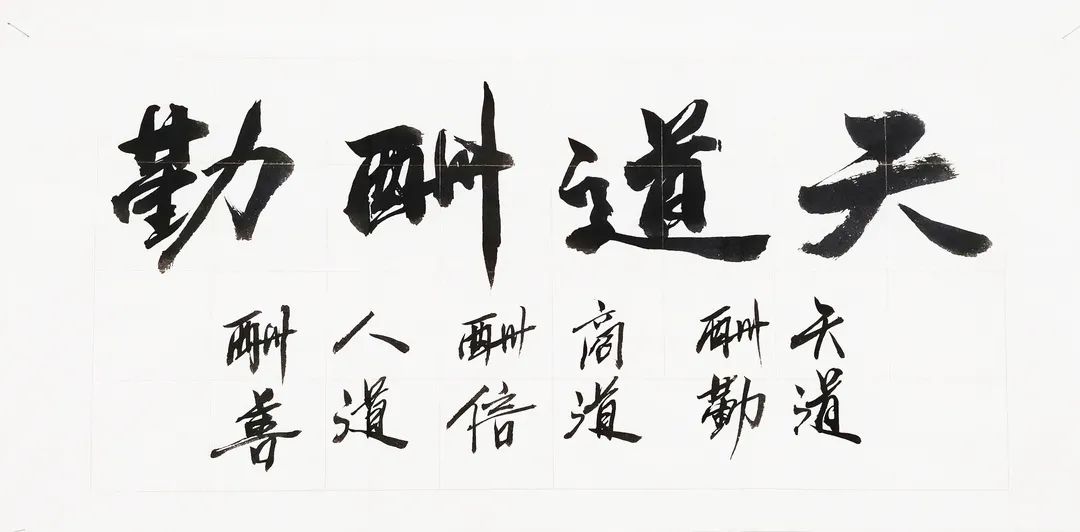 天道酬勤
天道
酬勤
商道
酬信
人道
酬善